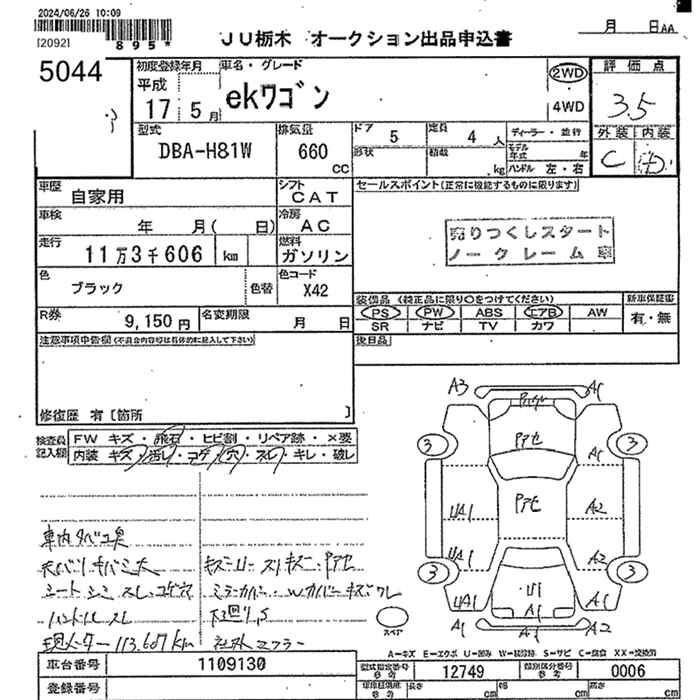 2024/06/26 10:09
[2092]
*895*
JU栃木 オークション出品申込書
月 日AA
5044
初度登録年月
平成
17 5月
車名・グレード
ekワゴン
2WD
4WD
評価点
3.5
外装 内装
C
型式
DBA-H81W
排気量
660 CC
ドア 5
定員 4人
形状
積載 kg
ディーラー・並行
モデル年式 年
ハンドル 左・右
車歴
自家用
シフト
CAT
車検
年 月( 日)
冷房
AC
走行
11万3千606 km
燃料
ガソリン
色
ブラック
色替
色コード
X42
R券
9,150円
名変期限
月 日
セールスポイント(正常に機能するものに限ります)
売りつくしスタート
ノークレーム車
装備品 (純正品に限り○をつけてください)
PS PW ABS エアB AW
SR ナビ TV カワ
新車保証書
有・無
後日品
注意事項申告欄(不具合内容等は具体的に記入して下さい)
修復歴 有〔箇所 〕
検査員記入欄
FW キズ・飛石・ヒビ割・リペア跡・×要
内装 キズ・汚レ・コゲ・穴・スレ・キレ・破レ
車内タバコ臭
ハンドルスレ
現メーター 113,607km
社外マフラー
A3
A1
Pアセ
Pアセ
3
3
A1
UA1
A2
UA1
A2
3
3
UA1
U1
A1
A1
A1
A2
スペア
A=キズ E=エクボ U=凹み W=補修跡 S=サビ C=腐食 XX=交換済
車台番号
1109130
登録番号
型式指定番号 参考
12749
類別区分番号 参考
0006
長さ cm
幅 cm
高さ cm